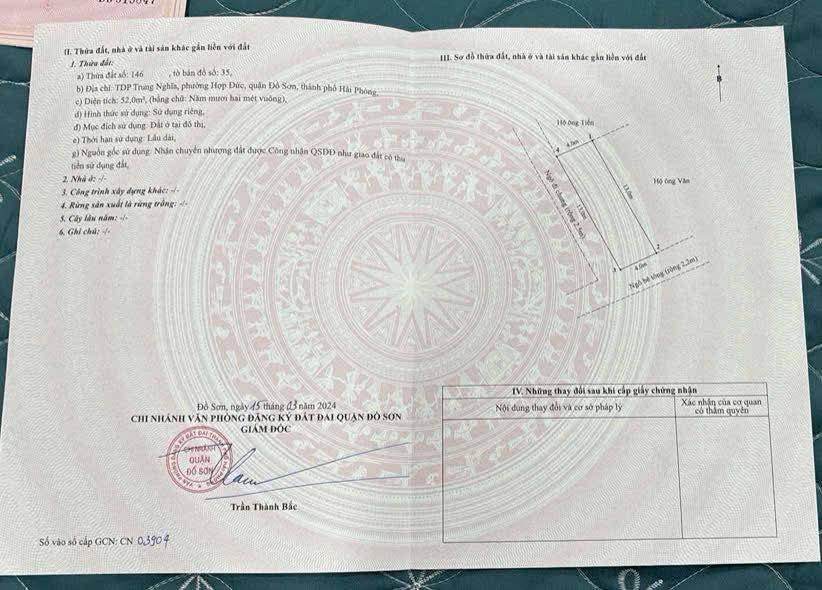 II. Thửa đất, nhà ở và tài sản khác gắn liền với đất
1. Thửa đất:
a) Thửa đất số: 146 , tờ bản đồ số: 35,
b) Địa chỉ: TDP Trung Nghĩa, phường Hợp Đức, quận Đồ Sơn, thành phố Hải Phòng,
c) Diện tích: 52,0m², (bằng chữ: Năm mươi hai mét vuông),
d) Hình thức sử dụng: Sử dụng riêng,
đ) Mục đích sử dụng: Đất ở tại đô thị,
e) Thời hạn sử dụng: Lâu dài,
g) Nguồn gốc sử dụng: Nhận chuyển nhượng đất được Công nhận QSDĐ như giao đất có thu
tiền sử dụng đất.
2. Nhà ở: -/-
3. Công trình xây dựng khác: -/-
4. Rừng sản xuất là rừng trồng: -/-
5. Cây lâu năm: -/-
6. Ghi chú: -/-
Đồ Sơn, ngày 15 tháng 03 năm 2024
CHI NHÁNH VĂN PHÒNG ĐĂNG KÝ ĐẤT ĐAI QUẬN ĐỒ SƠN
GIÁM ĐỐC
CHI NHÁNH
QUẬN
ĐỒ SƠN
Trần Thành Bắc
Số vào sổ cấp GCN: CN 03904
III. Sơ đồ thửa đất, nhà ở và tài sản khác gắn liền với đất
B
Hộ ông Tiến
4
4.0m
1
Hộ ông Vân
13.0m
13.0m
Ngõ đi chung (rộng 2,5m)
3
4.0m
2
Ngõ bê tông (rộng 2,2m)
IV. Những thay đổi sau khi cấp giấy chứng nhận
Nội dung thay đổi và cơ sở pháp lý
Xác nhận của cơ quan
có thẩm quyền